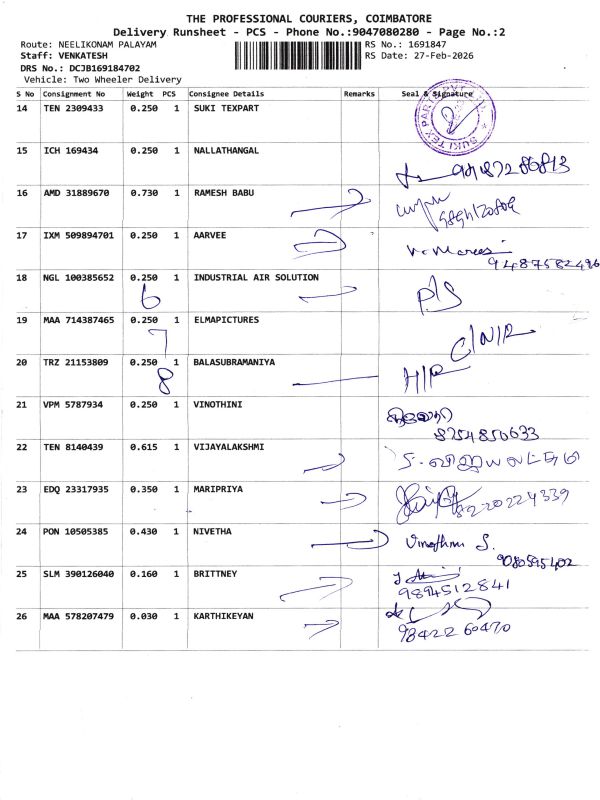 THE PROFESSIONAL COURIERS, COIMBATORE
Delivery Runsheet - PCS - Phone No.:9047080280 - Page No.:2
Route: NEELIKONAM PALAYAM RS No.: 1691847
Staff: VENKATESH RS Date: 27-Feb-2026
DRS No.: DCJB169184702
Vehicle: Two Wheeler Delivery
S No Consignment No Weight PCS Consignee Details Remarks Seal & Signature
14 TEN 2309433 0.250 1 SUKI TEXPART
SUKI TEX PART
15 ICH 169434 0.250 1 NALLATHANGAL
16 AMD 31889670 0.730 1 RAMESH BABU
17 IXM 509894701 0.250 1 AARVEE
9487582496
18 NGL 100385652 0.250 1 INDUSTRIAL AIR SOLUTION
6 P/S
19 MAA 714387465 0.250 1 ELMAPICTURES
7 C/N/R
20 TRZ 21153809 0.250 1 BALASUBRAMANIYA
8 H/R
21 VPM 5787934 0.250 1 VINOTHINI
8754850633
22 TEN 8140439 0.615 1 VIJAYALAKSHMI
23 EDQ 23317935 0.350 1 MARIPRIYA
8220224339
24 PON 10505385 0.430 1 NIVETHA
Vinothini S.
9080595402
25 SLM 390126040 0.160 1 BRITTNEY
9894512841
26 MAA 578207479 0.030 1 KARTHIKEYAN
98422 60470